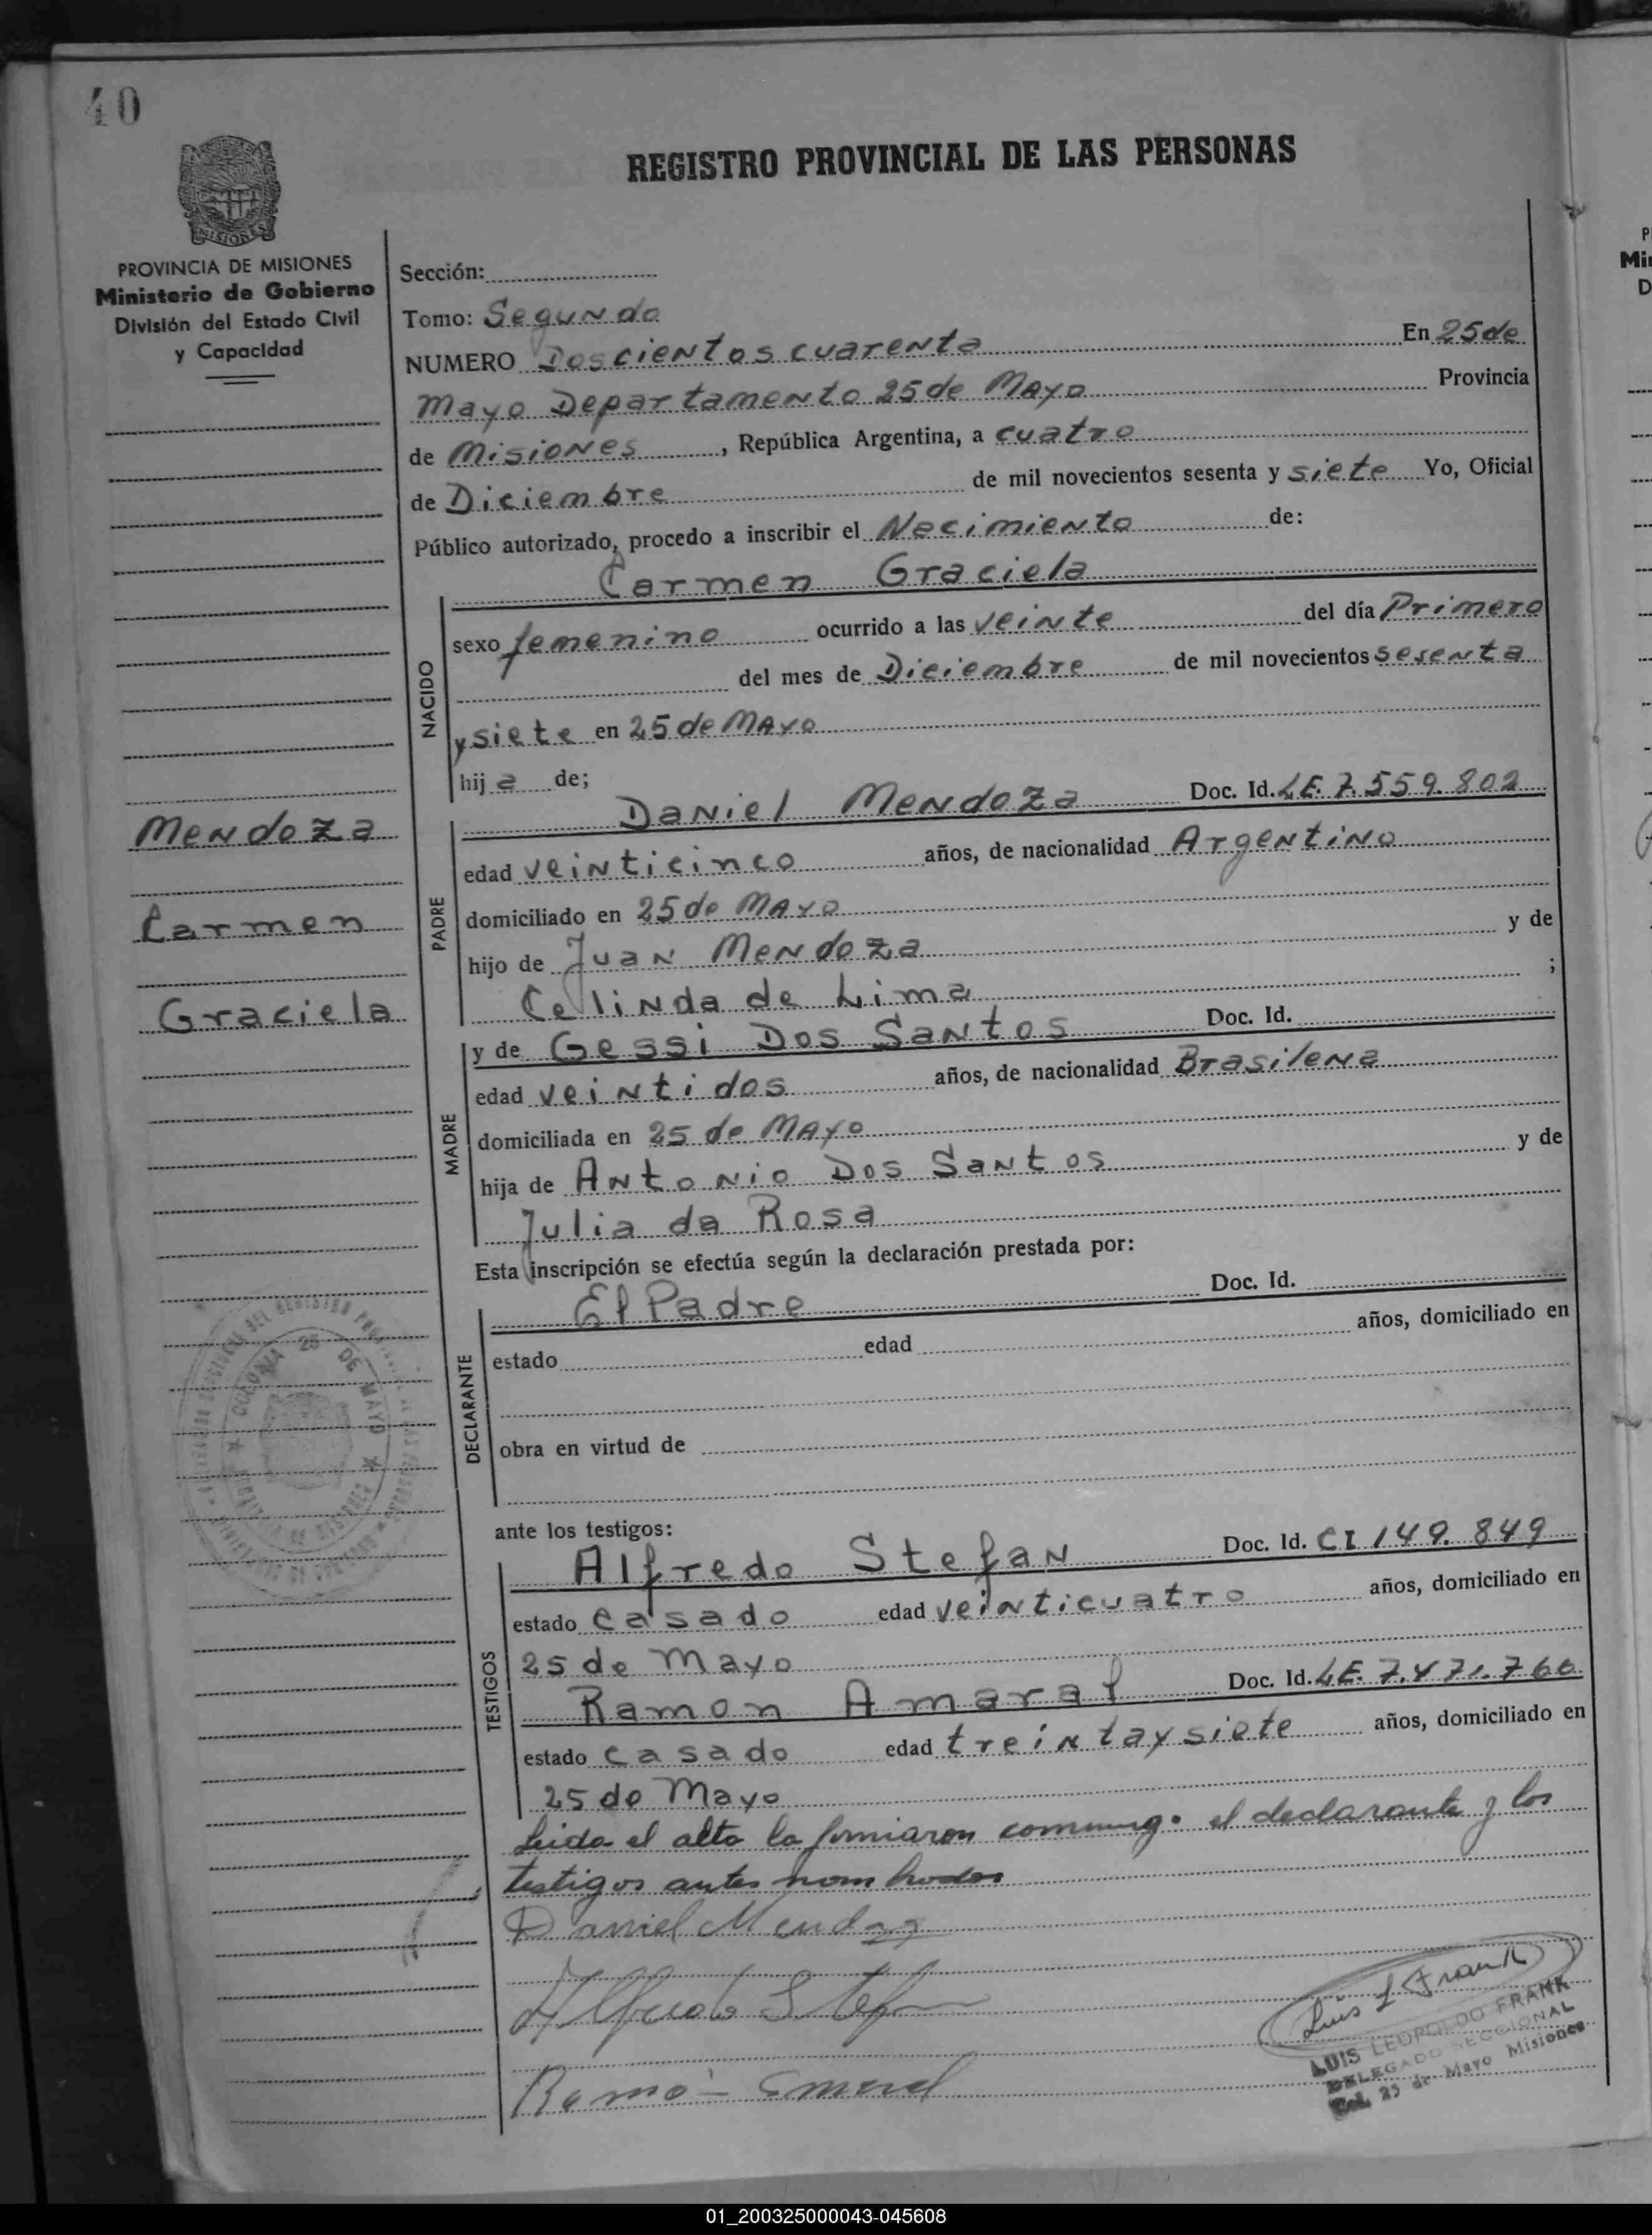 40
REGISTRO PROVINCIAL DE LAS PERSONAS
MISIONES
PROVINCIA DE MISIONES
Ministerio de Gobierno
División del Estado Civil
y Capacidad
Sección:
Tomo: Segundo
NUMERO Doscientos cuarenta En 25 de
Mayo Departamento 25 de Mayo Provincia
de Misiones, República Argentina, a cuatro
de Diciembre de mil novecientos sesenta y siete Yo, Oficial
Público autorizado, procedo a inscribir el Nacimiento de:
Carmen Graciela
NACIDO
sexo femenino ocurrido a las veinte del día Primero
del mes de Diciembre de mil novecientos sesenta
y siete en 25 de Mayo
hija de;
Mendoza
Carmen
Graciela
PADRE
Daniel Mendoza Doc. Id. LE. 7.559.802
edad veinticinco años, de nacionalidad Argentino
domiciliado en 25 de Mayo
hijo de Juan Mendoza y de
Cellinda de Lima ;
MADRE
y de Gessi Dos Santos Doc. Id.
edad veintidos años, de nacionalidad Brasilena
domiciliada en 25 de Mayo
hija de Antonio Dos Santos y de
Julia da Rosa
Esta inscripción se efectúa según la declaración prestada por:
DECLARANTE
El Padre Doc. Id.
estado edad años, domiciliado en
obra en virtud de
COLONIA 25 DE MAYO
ante los testigos:
TESTIGOS
Alfredo Stefan Doc. Id. CI 149.849
estado casado edad veinticuatro años, domiciliado en
25 de Mayo
Ramon Amaral Doc. Id. LE. 7.471.766
estado casado edad treinta y siete años, domiciliado en
25 de Mayo
Leida el alta la firmaron conmigo el declarante y los
testigos antes nombrados
Daniel Mendoza
Alfredo Stefan
Luis L Frank
LUIS LEOPOLDO FRANK
DELEGADO SECCIONAL
Col. 25 de Mayo Misiones
01_200325000043-045608